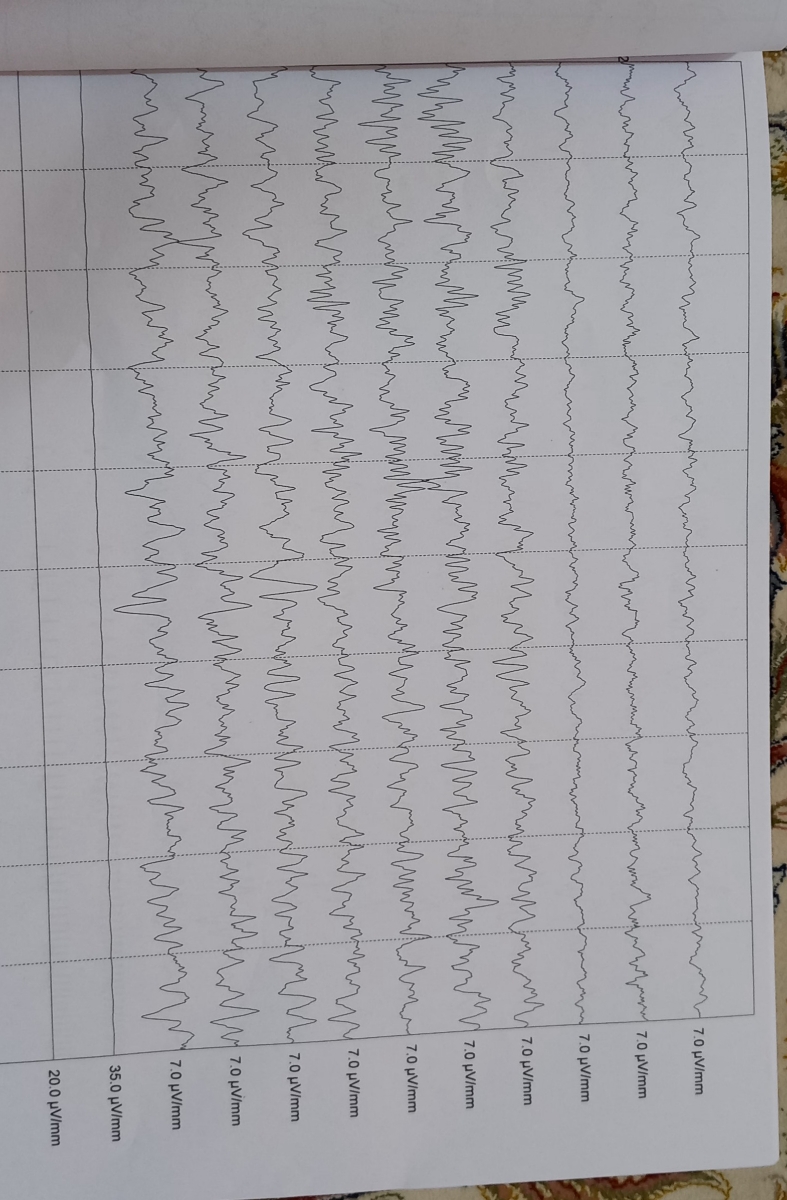 7.0 µV/mm
7.0 µV/mm
7.0 µV/mm
7.0 µV/mm
7.0 µV/mm
7.0 µV/mm
7.0 µV/mm
7.0 µV/mm
7.0 µV/mm
7.0 µV/mm
35.0 µV/mm
20.0 µV/mm